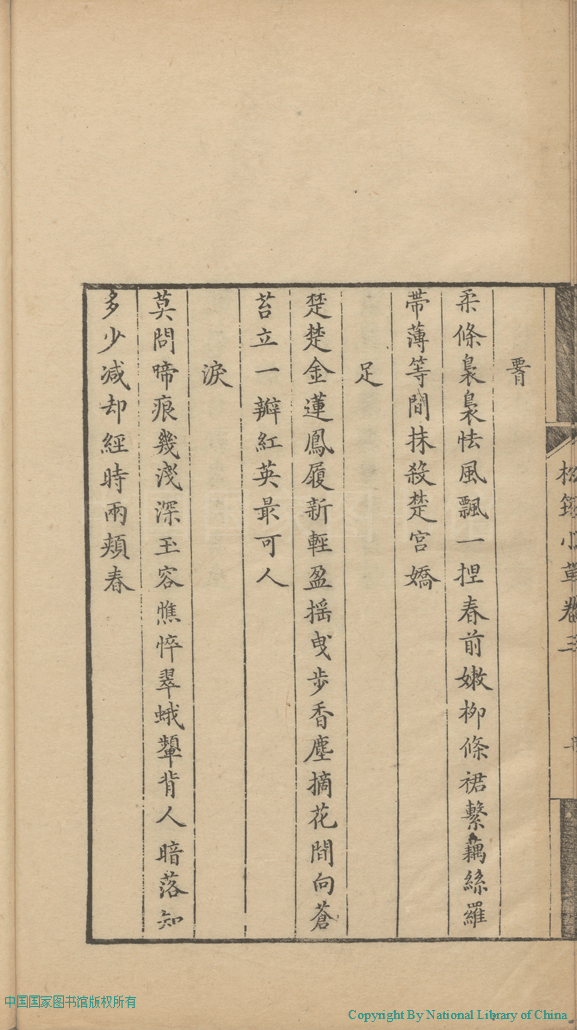 䁂
柔條裊裊怯風飄一揑春前嫩柳條裙繫藕絲羅
帶薄等間抹殺楚宮嬌
足
楚楚金蓮鳳履新輕盈搖曳步香塵摘花間向蒼
苔立一瓣紅英最可人
淚
莫問啼痕幾淺深玉容憔悴翠蛾顰背人暗落知
多少減却經時兩頰春
小草卷三
中国国家图书馆版权所有
Copyright By National Library of China